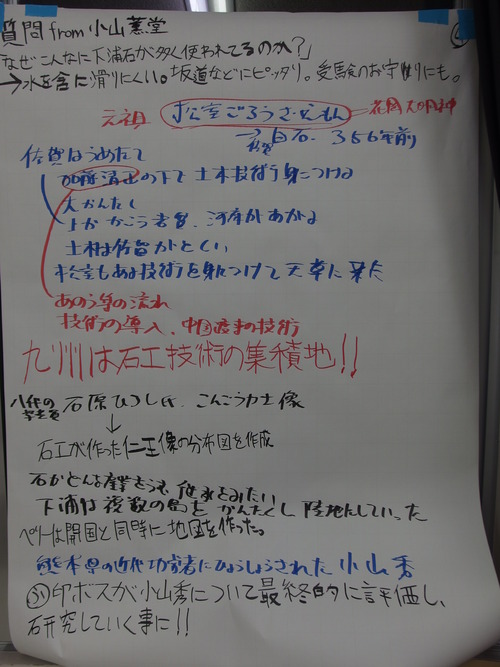 質問 from 小山薫堂
「なぜこんなに下浦石が多く使われてるのか?」
→水を含に滑りにくい。坂道などにピッタリ。受験のお守りにも。
元祖 松室ごろうざえもん
→ 白石. 356年前
佐賀はうめたて
加藤清正の下で土木技術を身につける
大かんたく
土木は佐賀がとくい
松室もある技術を身につけて天草に来た
あのう等の流れ
技術の導入、中国渡来の技術
九州は石工技術の集積地!!
八代の 石原ひろし氏. こんごう力士像
↓
石工が作った仁王像の分布図を作成
下浦は複数の島をかんたくし陸地にしていった
ペリーは開国と同時に地図を作った。
熊本県の近代功労者にひょうしょうされた 小山秀
印ボスが小山秀について最終的に評価し、
石研究していく事に!!